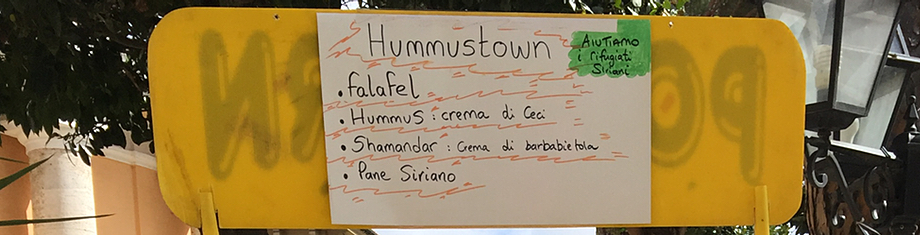 Hummustown
AiUTIAMO
i rifugiati
Siriani
• falafel
• Hummus : crema di Ceci
• Shamandar : Crema di barbabietola
• Pane Siriano